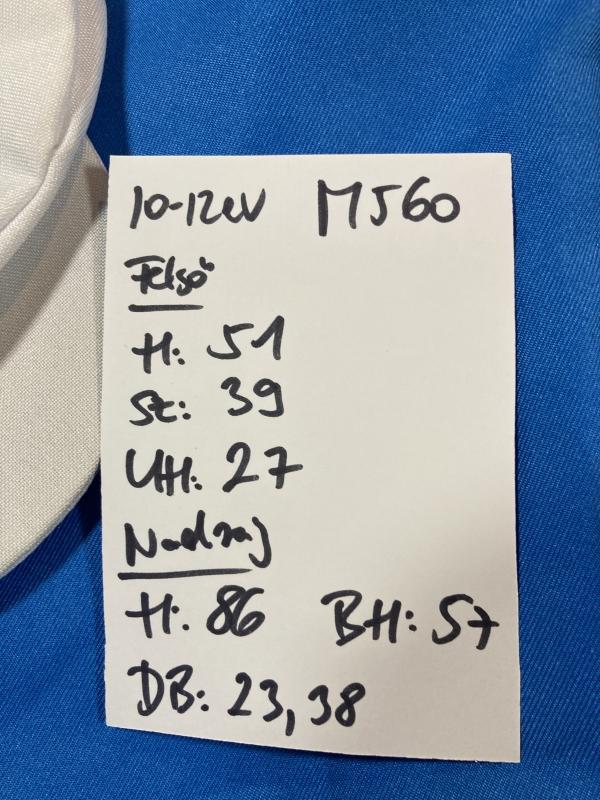 10-12 év M560
Felső
H: 51
Sz: 39
UH: 27
Nadrág
H: 86 BH: 57
DB: 23, 38